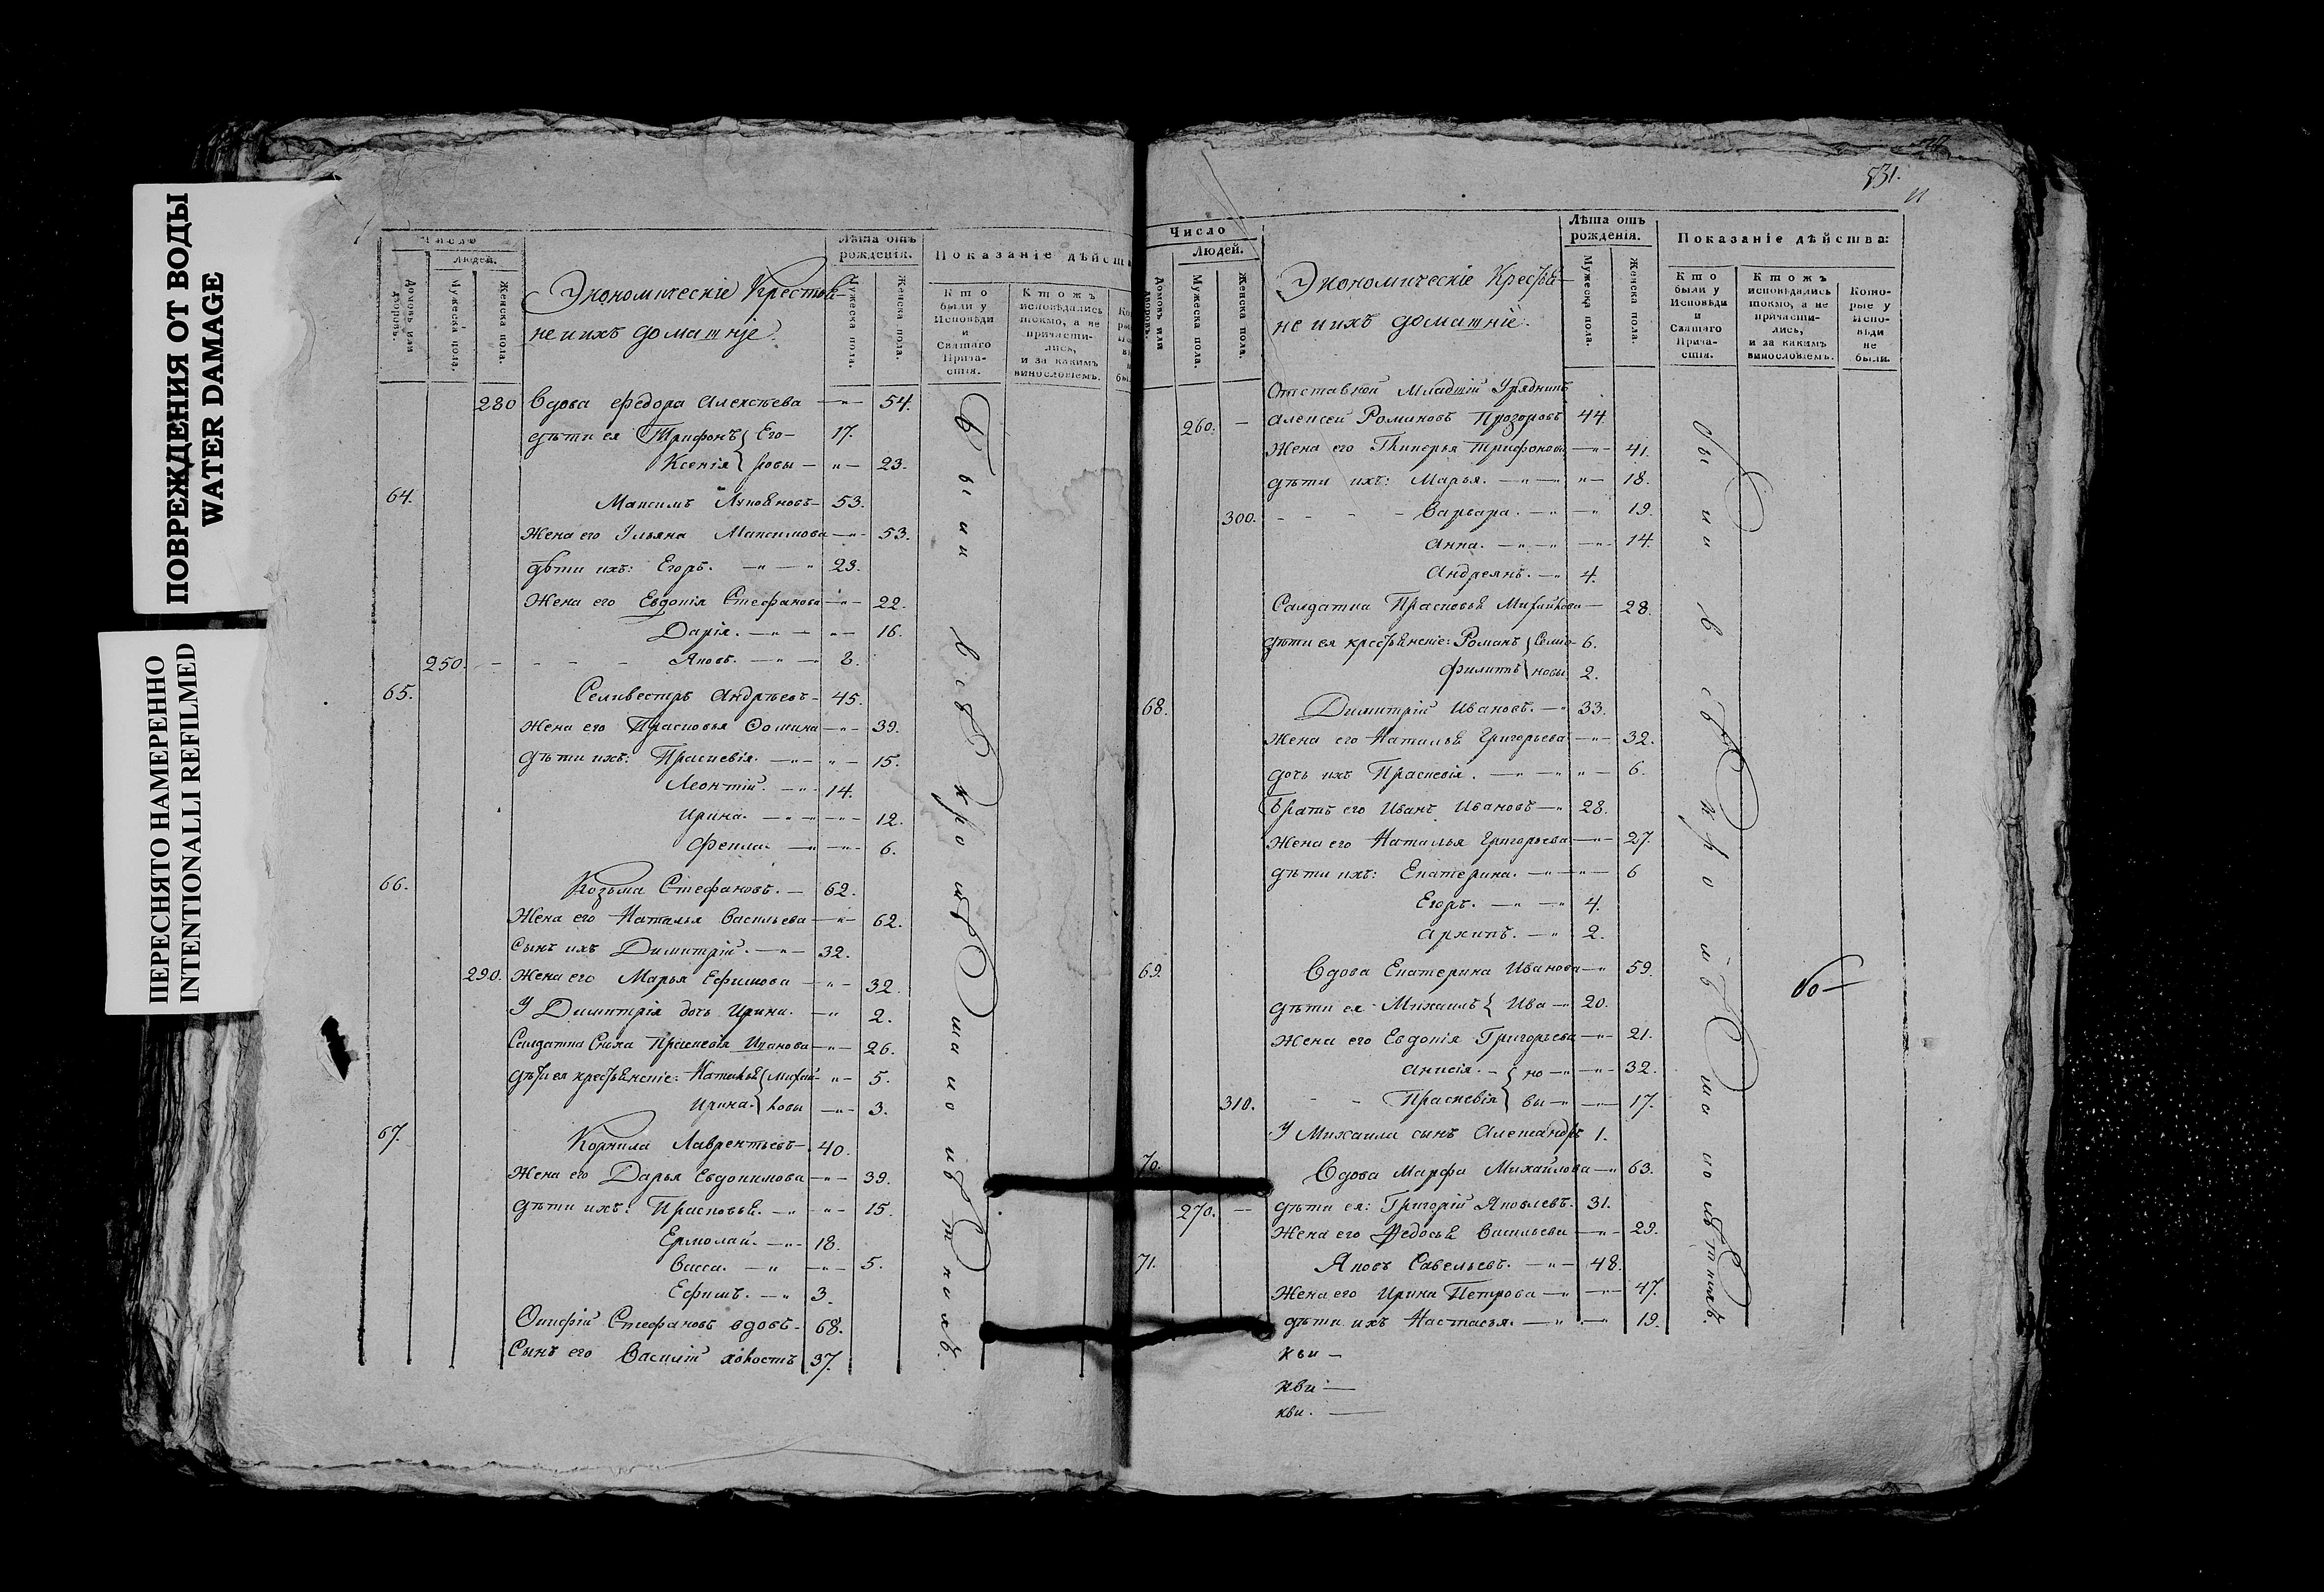 ПОВРЕЖДЕНИЯ ОТ ВОДЫ
WATER DAMAGE
ПЕРЕСНЯТО НАМЕРЕННО
INTENTIONALLI REFILMED
Число
Людей.
Домовъ или дворовъ.
Мужеска пола.
Женска пола.
Экономическіе Крестья-
не и ихъ домашніе.
Лѣта отъ
рожденія.
Мужеска пола.
Женска пола.
Показаніе дѣйст
Кто
были у
Исповѣди
и
Святаго
Прича-
стія.
Ктожъ
исповѣдались
токмо, а не
причасти-
лись,
и за какимъ
винословіемъ.
280 Вдова Федора Алексѣева —"— 54.
дѣти ея Трифонъ { Его- 17.
Ксенія } ровы — "— 23.
64. Максимъ — 53.
Жена его Максимова —"— 53.
дѣти ихъ: Егоръ. —"—" 23.
Жена его Евдокія Стефанова —"— 22.
Дарія. —"— "— 16.
250. - - - - Яковъ. —"— 8.
65. Селивестръ Андрѣевъ — 45.
Жена его Прасковья Ѳомина —"— 39.
дѣти ихъ: Праскевія. —"— "— 15.
Леонтій. —"— 14.
Ирина. —"— —"— 12.
Фекла. —" —"— 6.
66. Козьма Стефановъ. — 62.
Жена его Наталья Васильева —"— 62.
Сынъ ихъ Димитрій. —"— 32.
290. Жена его Марья Ефимова — "— 32.
У Димитрія дочь Ирина. —" 2.
Салдатка Сноха Праскевія Иванова —"— 26.
дѣти ея крестьянскіе: Наталья { Михай- "— 5.
Ирина. } ловы —"— 3.
67. Корнила Лаврентьевъ — 40.
Жена его Дарья Евдокимова —"— 39.
дѣти ихъ: Прасковья. —"— "— 15.
Ермолай. —"— 18.
Васса. —" —"— 5.
Ефимъ. —" 3.
Стефановъ вдовъ — 68.
Сынъ его Василій холостъ 37.
Были
всѣ
кромѣ
малолѣтнохъ.
531.
Число
Людей.
Домовъ или дворовъ.
Мужеска пола.
Женска пола.
Экономическіе Крестья-
не и ихъ домашніе.
Лѣта отъ
рожденія.
Мужеска пола.
Женска пола.
Показаніе дѣйства:
Кто
были у
Исповѣди
и
Святаго
Прича-
стія.
Ктожъ
исповѣдались
токмо, а не
причасти-
лись,
и за какимъ
винословіемъ.
Кото-
рые у
Испо-
вѣди
не
были.
Отставной Младшій Урядникъ
260. — Алексей Романовъ Прозоровъ 44.
Жена его Гликерья Трифонова —"— 41.
дѣти ихъ: Марья. —"— "— 18.
300. - - - - Варвара. —" —" 19.
Анна. —"—" —"— 14.
Андреянъ. —" 4.
Салдатка Прасковья Михайлова — 28.
дѣти ея крестьянскіе: Романъ } Семіо- 6.
Филиппъ } новы 2.
68. Димитрій Ивановъ. —" 33.
Жена его Наталья Григорьева —"— 32.
дочь ихъ Праскевія. —"—" "— 6.
Братъ его Иванъ Ивановъ —" 28.
Жена его Наталья Григорьева —"— 27.
дѣти ихъ: Екатерина. —" —"— 6
Егоръ. —"—" 4.
Архипъ. —" 2.
69. Вдова Екатерина Иванова —" 59.
дѣти ея Михаилъ { Ива — 20.
Жена его Евдокія Григорьева —"— 21.
Анисія. — { но —" —"— 32.
310. - - Праскевія } вы —" —"— 17.
У Михаила сынъ Александръ 1.
70. Вдова Марфа Михайлова —" 63.
270. — дѣти ея: Григорій Яковлевъ. 31.
Жена его Федосья Васильева —"— 29.
71. Яковъ Савельевъ. —"— 48.
Жена его Ирина Петрова —" —"— 47.
дѣти ихъ Настасья. —" —"— 19.
кви —
кви —
кви. —
были
всѣ
кромѣ
малолѣтнихъ.